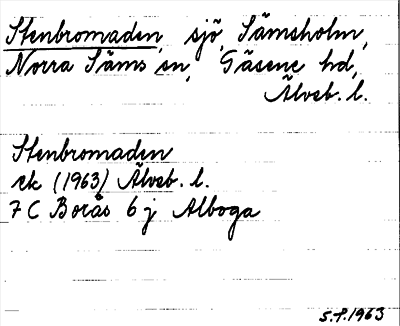 Stenbromaden, sjö, Sämsholm,
Norra Säms sn, Gäsene hd,
Älvsb. l.
Stenbromaden
rk (1963) Älvsb. l.
7 C Borås 6 j Alboga
S.P. 1963